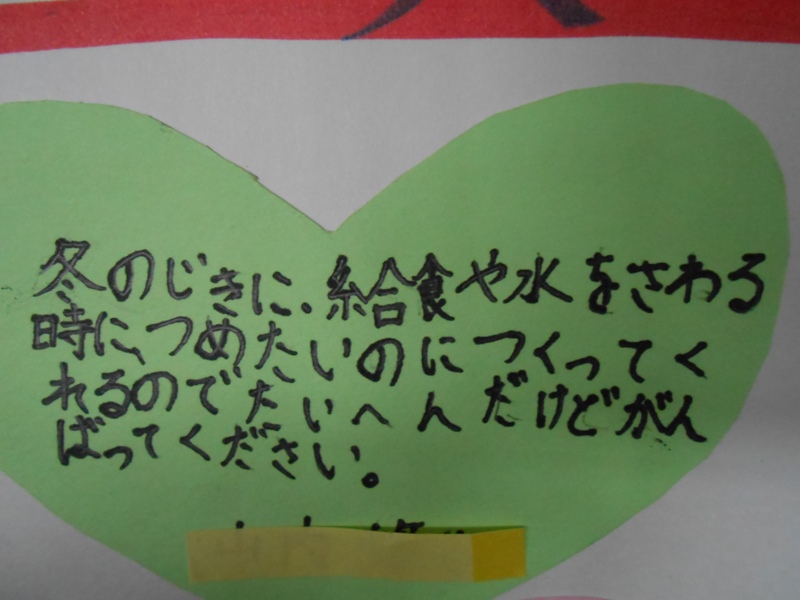 冬のじきに、給食や水をさわる
時に、つめたいのにつくってく
れるのでたいへんだけどがん
ばってください。